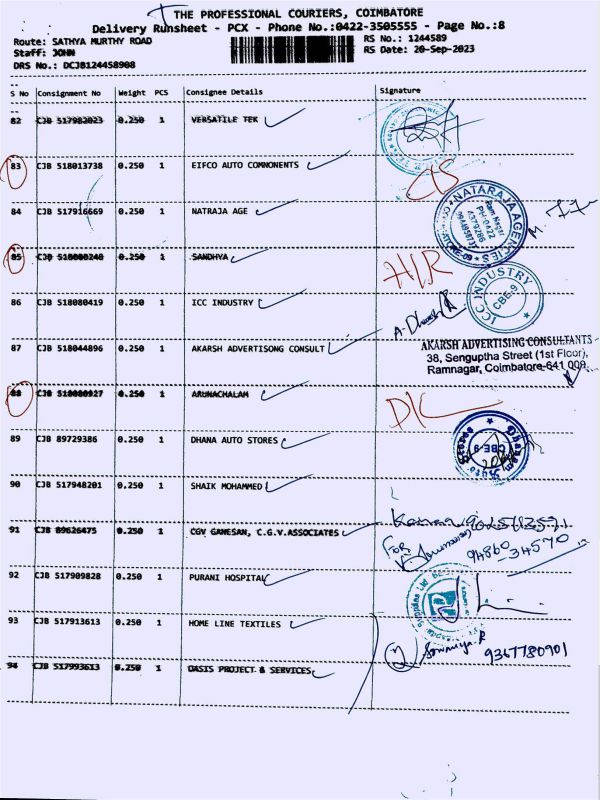 THE PROFESSIONAL COURIERS, COIMBATORE
Delivery Runsheet - PCX - Phone No.:0422-3505555 - Page No.:8
Route: SATHYA MURTHY ROAD RS No.: 1244589
Staff: JOHN RS Date: 20-Sep-2023
DRS No.: DCJB124458908
S No Consignment No Weight PCS Consignee Details Signature
82 CJB 517982023 0.250 1 VERSATILE TEK
83 CJB 518013738 0.250 1 EIFCO AUTO COMNONENTS
84 CJB 517916669 0.250 1 NATRAJA AGE
NATARAJA AGENCIES
Ram Nagar
PH-0422
4379286
85 CJB 518080240 0.250 1 SANDHYA H/R
86 CJB 518080419 0.250 1 ICC INDUSTRY
ICC INDUSTRY
CBE-9
87 CJB 518044896 0.250 1 AKARSH ADVERTISONG CONSULT
AKARSH ADVERTISING CONSULTANTS
38, Senguptha Street (1st Floor),
Ramnagar, Coimbatore-641 009.
88 CJB 518080927 0.250 1 ARUNACHALAM D/L
89 CJB 89729386 0.250 1 DHANA AUTO STORES
CBE-9
90 CJB 517948201 0.250 1 SHAIK MOHAMMED
91 CJB 89626475 0.250 1 CGV GANESAN, C.G.V.ASSOCIATES
For
94860 34570
92 CJB 517909828 0.250 1 PURANI HOSPITAL
93 CJB 517913613 0.250 1 HOME LINE TEXTILES
Sowmiya.R
9367780901
94 CJB 517993613 0.250 1 OASIS PROJECT & SERVICES